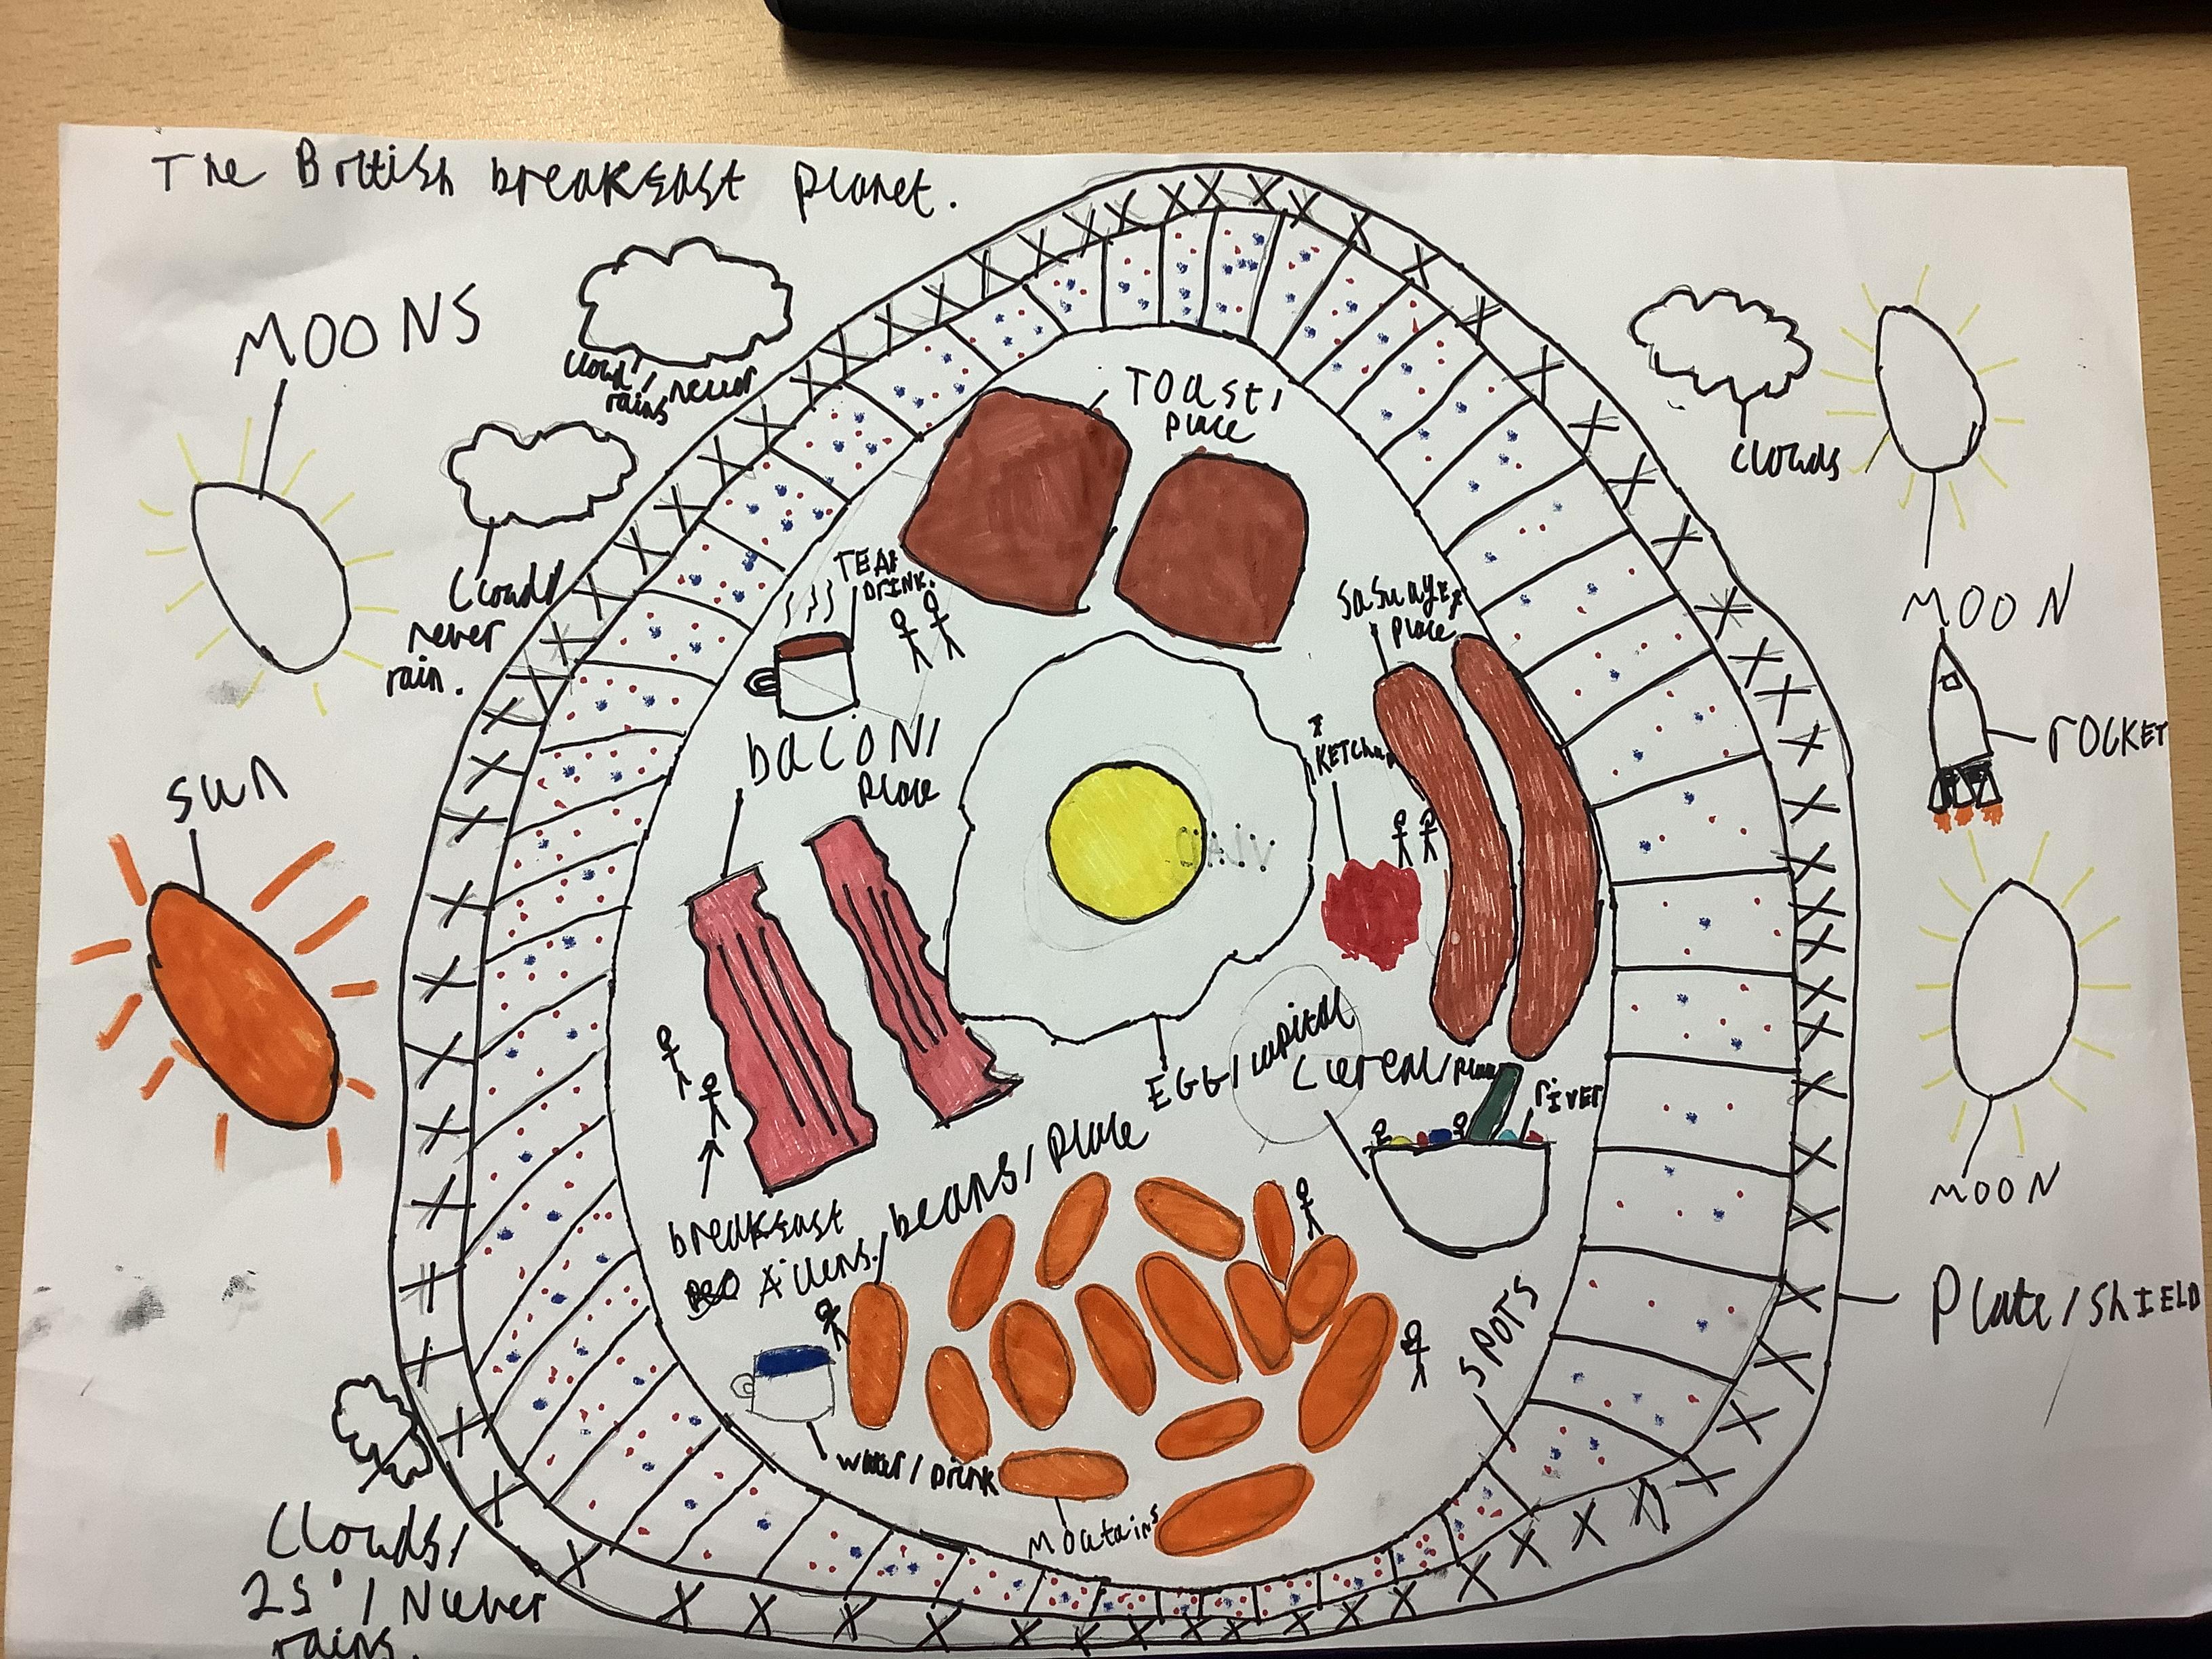 The British breakfast planet.
MOONS
cloud/
rains never
cloud/
never
rain.
clouds
MOON
TOast/
place
TEA/
DRINK.
sasuages/
place
bacON/
place
KETChup
rOCKET
sun
EGG/capital
cereal/place
river
MOON
beans/place
breakfast
Ailens.
SPOTS
Plate/ShIELD
water/Drink
Moutains
Clouds/
25°/Never
rains.